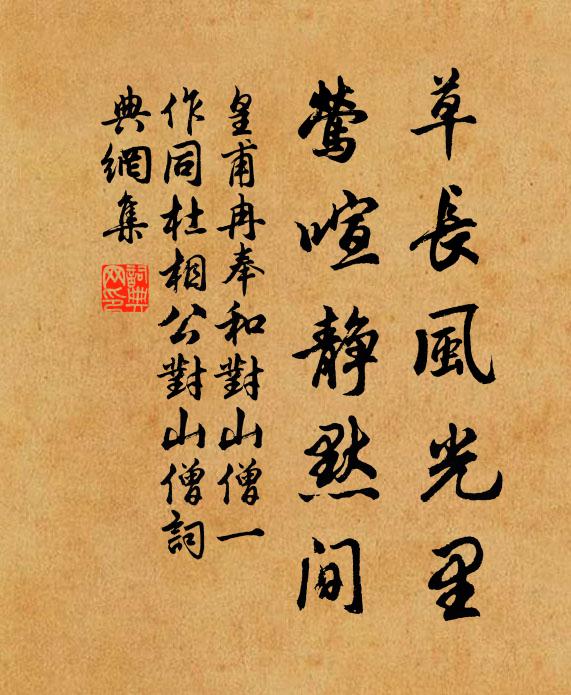 草長風光里
鶯喧靜默間
皇甫冉奉和對山僧一
作同杜相公對山僧詞
典網集
詞典網印